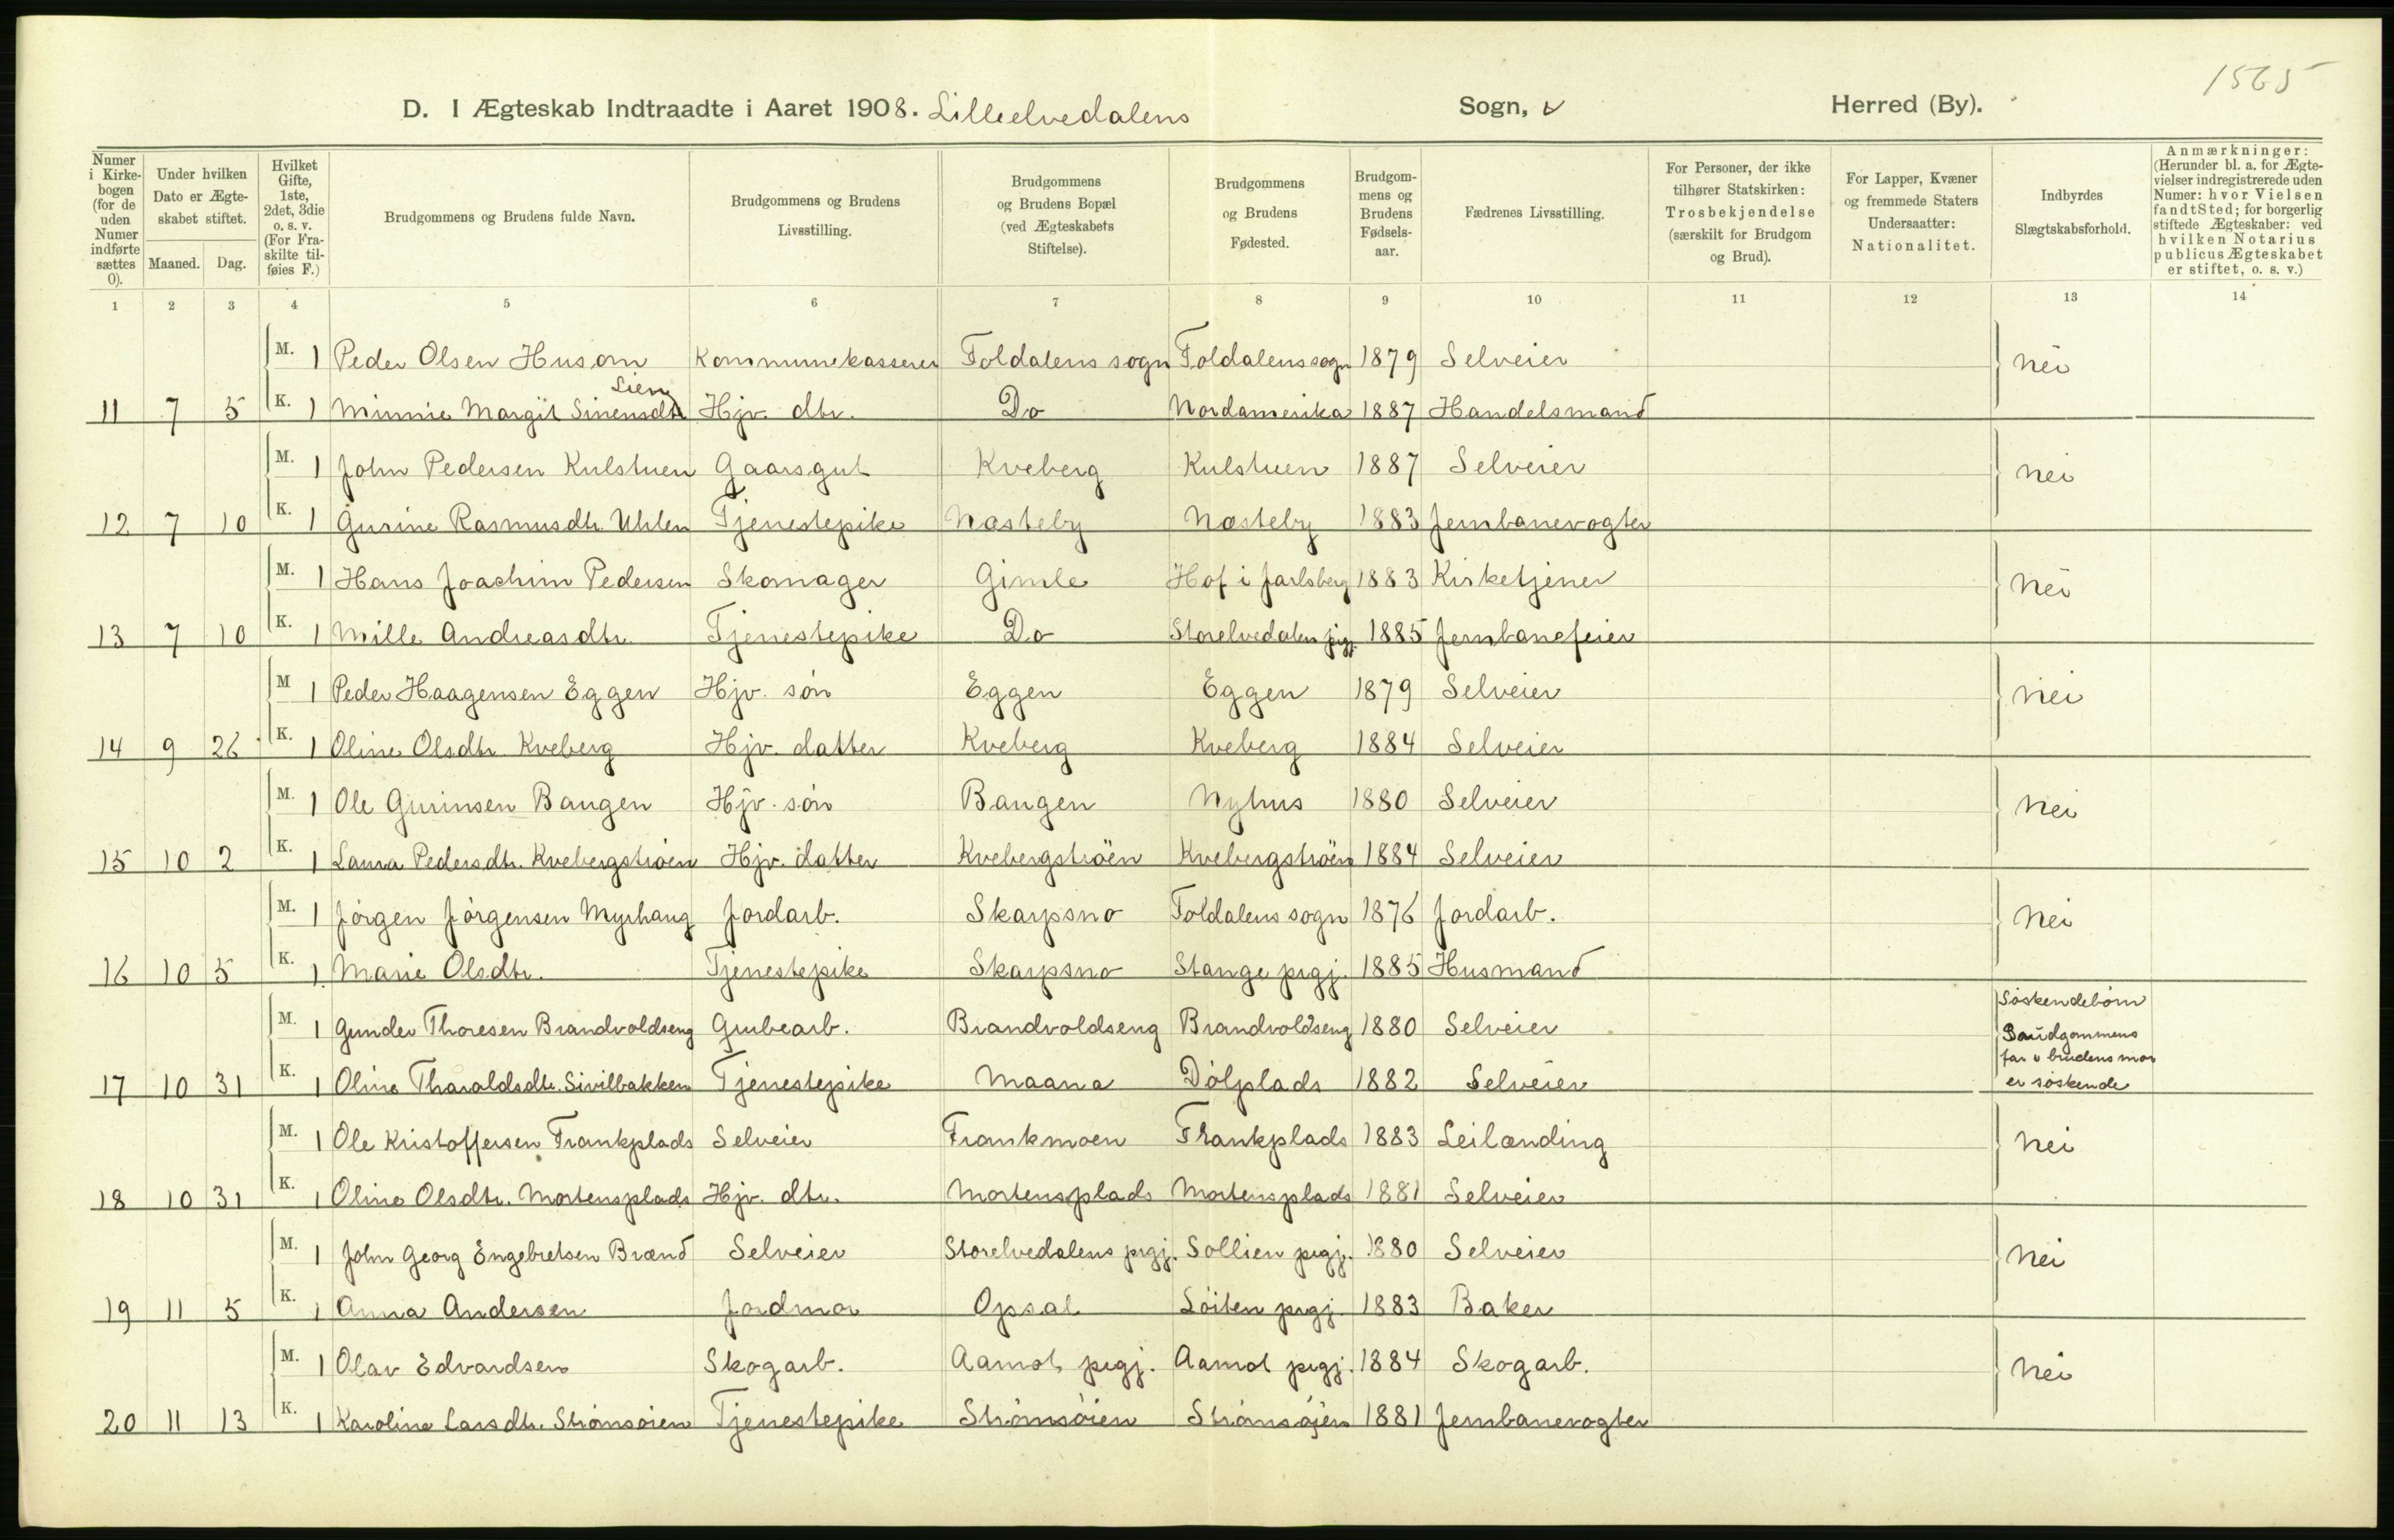 1565
D. I Ægteskab Indtraadte i Aaret 1908. Lilleelvedalens Sogn, Herred (By).
Numer i Kirkebogen (for de uden Numer indførte sættes 0). Under hvilken Dato er Ægteskabet stiftet. Maaned. Dag. Hvilket Gifte, 1ste, 2det, 3die o. s. v. (For Fraskilte tilføies F.) Brudgommens og Brudens fulde Navn. Brudgommens og Brudens Livsstilling. Brudgommens og Brudens Bopæl (ved Ægteskabets Stiftelse). Brudgommens og Brudens Fødested. Brudgommens og Brudens Fødselsaar. Fædrenes Livsstilling. For Personer, der ikke tilhører Statskirken: Trosbekjendelse (særskilt for Brudgom og Brud). For Lapper, Kvæner og fremmede Staters Undersaatter: Nationalitet. Indbyrdes Slægtskabsforhold. Anmærkninger: (Herunder bl. a. for Ægtevielser indregistrerede uden Numer: hvor Vielsen fandt Sted; for borgerlig stiftede Ægteskaber: ved hvilken Notarius publicus Ægteskabet er stiftet, o. s. v.)
1 2 3 4 5 6 7 8 9 10 11 12 13 14
M. 1 Peder Olsen Husom Kommunekasserer Foldalens sogn Foldalens sogn 1879 Selveier nei
Lien
11 7 5 K. 1 Minnie Margit Sinensdtr Hjv. dtr. Do Nordamerika 1887 Handelsmand
M. 1 John Pedersen Kulstuen Gaarsgut Kveberg Kulstuen 1887 Selveier nei
12 7 10 K. 1 Gurine Rasmusdtr. Uhlen Tjenestepike Næsteby Næsteby 1883 Jernbanevogter
M. 1 Hans Joachim Pedersen Skomager Gimle Hof i Jarlsberg 1883 Kirketjener nei
13 7 10 K. 1 Mille Andreasdtr. Tjenestepike Do Storelvedalen 1885 Jernbanefeier
M 1 Peder Haagensen Eggen Hjv. søn Eggen Eggen 1879 Selveier nei
14 9 26 K. 1 Oline Olsdtr. Kveberg Hjv. datter Kveberg Kveberg 1884 Selveier
M. 1 Ole Gurinsen Baugen Hjv. søn Baugen Nyhus 1880 Selveier nei
15 10 2 K. 1 Laura Pedersdtr. Kvebergstrøen Hjv. datter Kvebergstrøen Kvebergstrøen 1884 Selveier
M. 1 Jørgen Jørgensen Myrhaug Jordarb. Skarpsno Foldalens sogn 1876 Jordarb. nei
16 10 5 K. 1 Marie Olsdtr. Tjenestepike Skarpsno Stange prgj. 1885 Husmand
M. 1 Gunder Thoresen Brandvoldseng Grubearb. Brandvoldseng Brandvoldseng 1880 Selveier Søskendebørn
Brudgommens
far o brudens mor
17 10 31 K. 1 Oline Tharaldsdtr. Sivilbakken Tjenestepike Maana Dølplads 1882 Selveier er søskende
M. 1 Ole Kristoffersen Frankplads Selveier Frankmoen Frankplads 1883 Leilænding nei
18 10 31 K. 1 Oline Olsdtr. Mortensplads Hjv. dtr. Mortensplads Mortensplads 1881 Selveier
M. 1 John Georg Engebretsen Brænd Selveier Storelvedalens prgj. Sollien prgj. 1880 Selveier nei
19 11 5 K. 1 Anna Andersen Jordmor Opsal Løiten prgj. 1883 Baker
M. 1 Olav Edvardsen Skogarb. Aamot prgj. Aamot prgj. 1884 Skogarb. nei
20 11 13 K. 1 Karoline Larsdtr. Strømsøien Tjenestepike Strømsøien Strømsøien 1881 Jernbanevogter